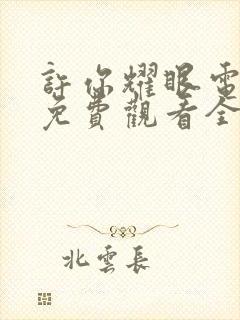 許你耀眼電
免費觀看全
北雲長